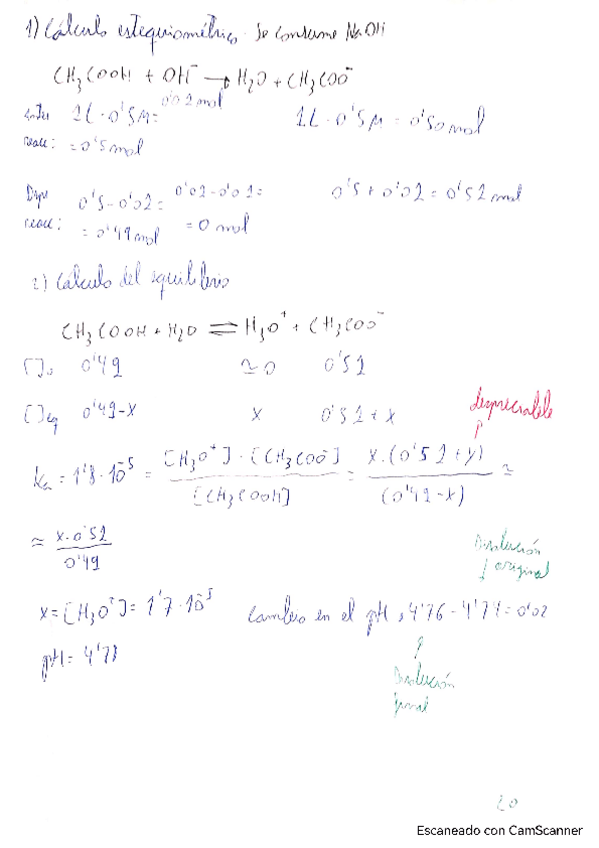 1) Cálculo estequiométrico. Se consume NaOH
CH₃COOH + OH⁻ → H₂O + CH₃COO⁻
Antes 1L · 0'5M = 0'01 mol 1L · 0'5M = 0'50 mol
reacc: = 0'5 mol
Desp 0'5 - 0'01 = 0'01 - 0'01 = 0'5 + 0'01 = 0'51 mol
reacc: = 0'49 mol = 0 mol
2) Cálculo del equilibrio
CH₃COOH + H₂O ⇌ H₃O⁺ + CH₃COO⁻
[ ]₀ 0'49 ≃ 0 0'51
[ ]eq 0'49-x x 0'51 + x
despreciable
Ka = 1'8 · 10⁻⁵ = [H₃O⁺] · [CH₃COO⁻] / [CH₃COOH] = x · (0'51 + x) / (0'49 - x) ≃
≃ x · 0'51 / 0'49
Disolución
original
x = [H₃O⁺] = 1'7 · 10⁻⁵ Cambio en el pH, 4'76 - 4'74 = 0'02
pH =
Disolución
final
20
Escaneado con CamScanner